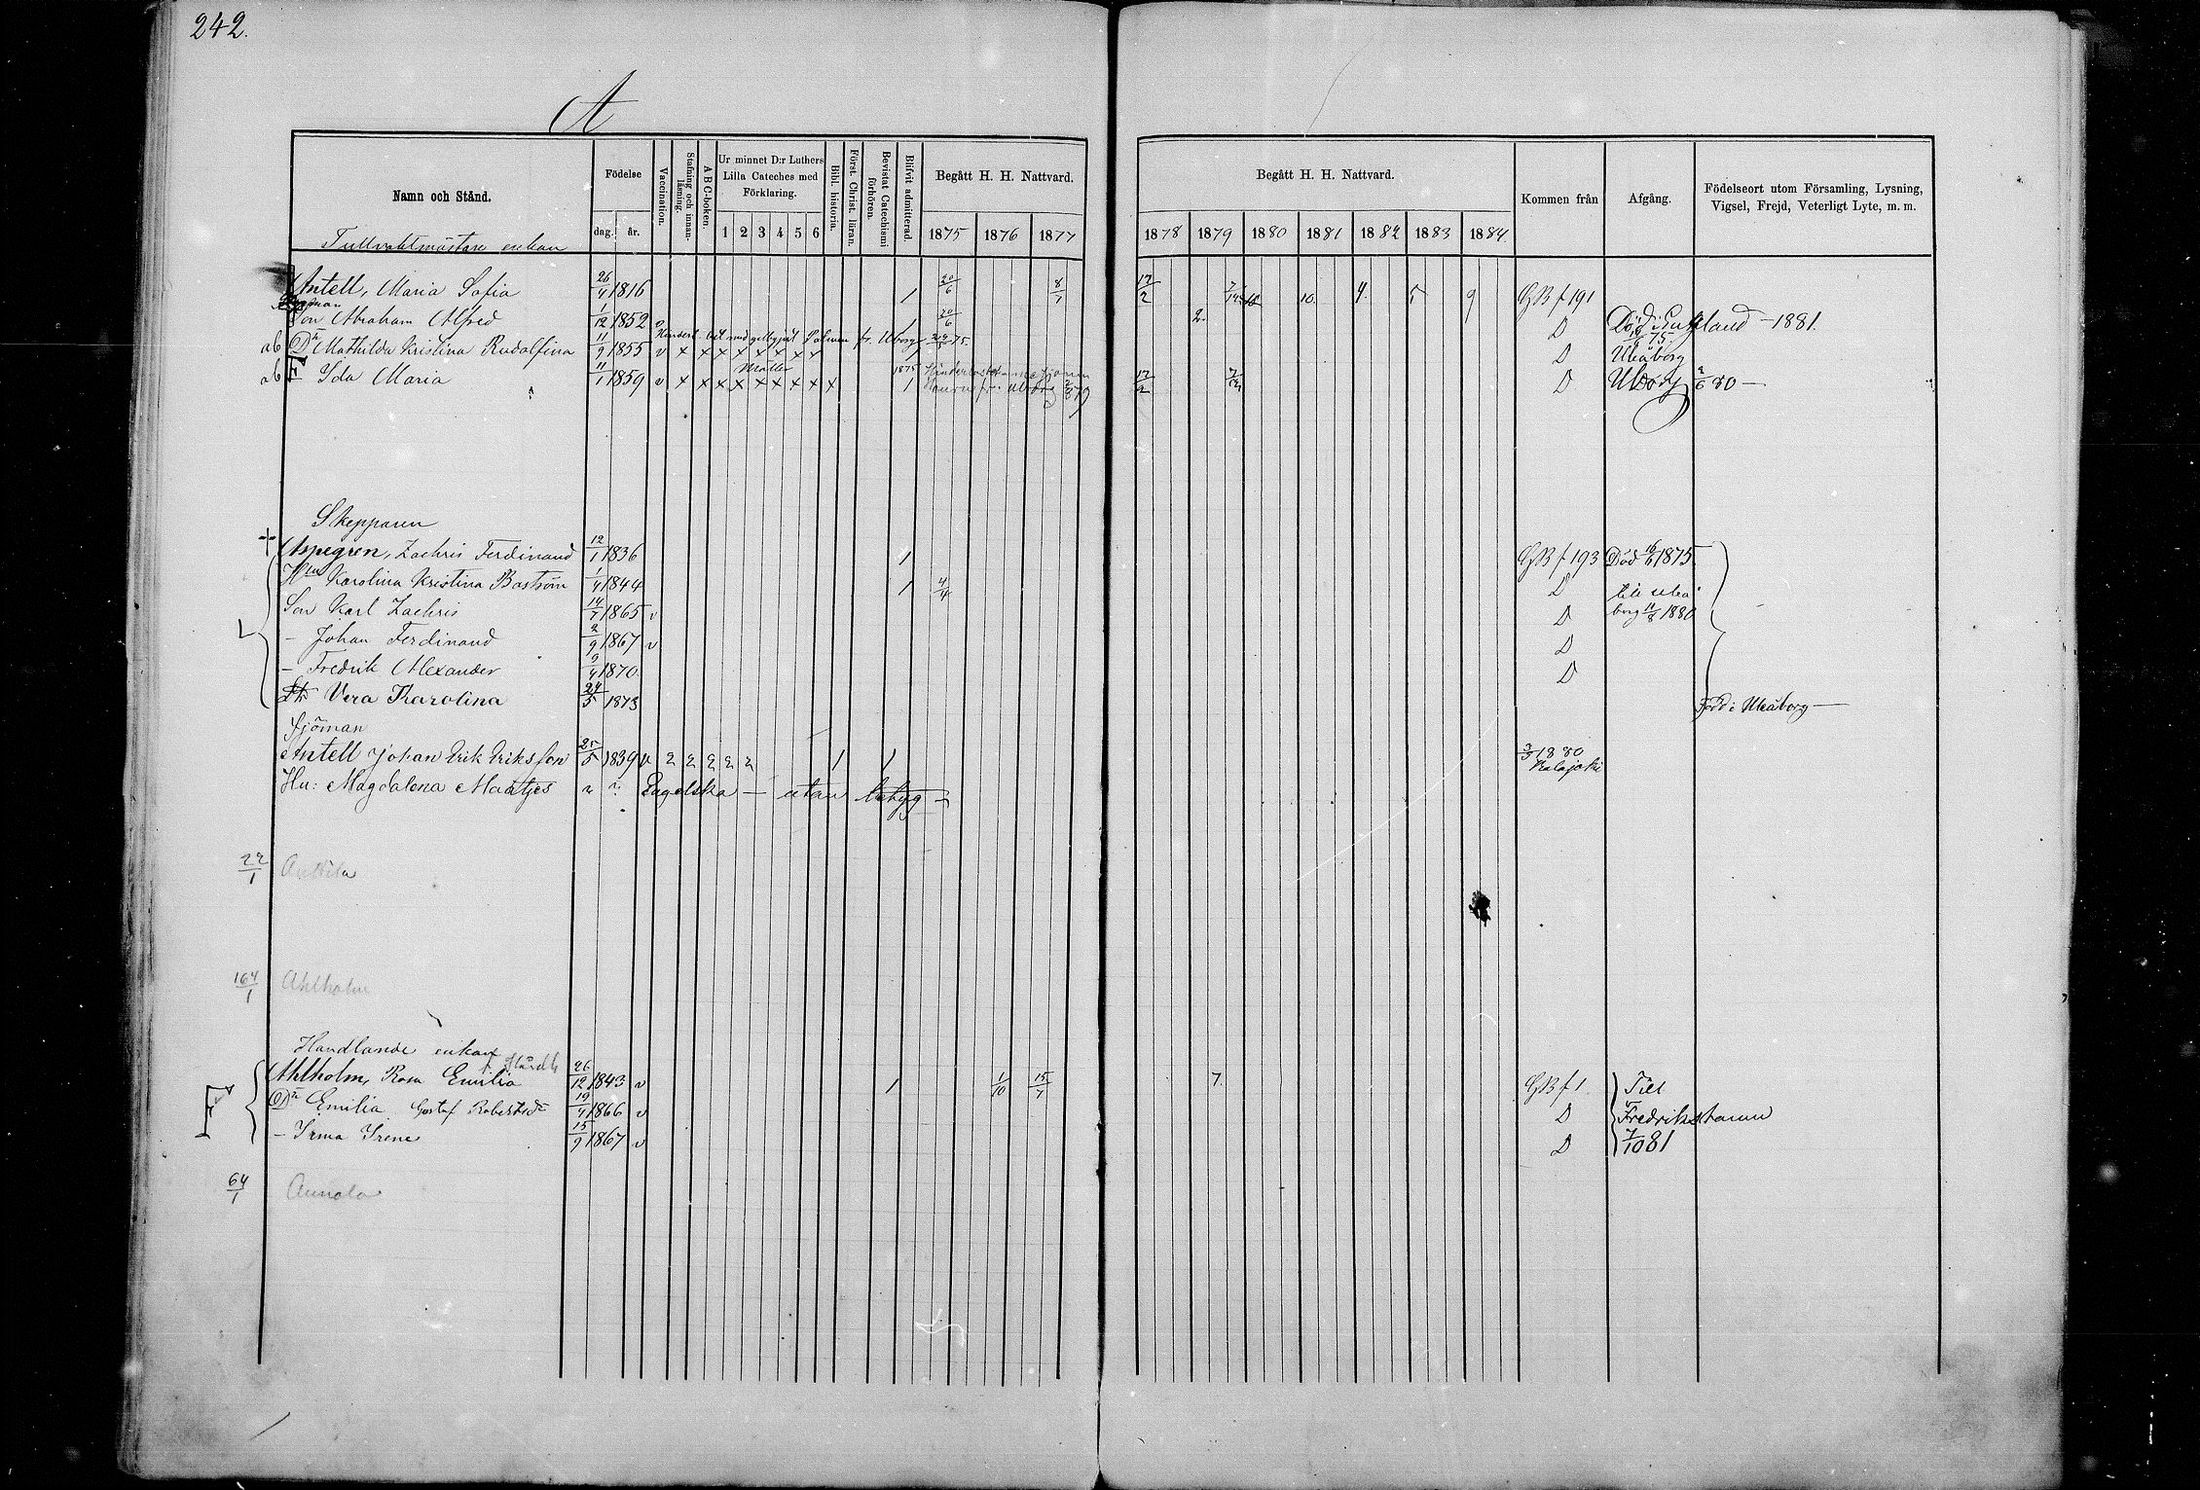 242.
A
Namn och Stånd.
Födelse
dag.
år.
Vaccination.
Stafning och innanläsning.
A B C-boken.
Ur minnet D:r Luthers Lilla Cateches med Förklaring.
1 2 3 4 5 6
Bibl. historia.
Först. Christ. läran.
Bevistat Catechismi förhören.
Blifvit admitterad.
Begått H. H. Nattvard.
1875 1876 1877
Begått H. H. Nattvard.
1878 1879 1880 1881 1882 1883 1884
Kommen från
Afgång.
Födelseort utom Församling, Lysning, Vigsel, Frejd, Veterligt Lyte, m. m.
Tullvaktmästare enkan
Antell, Maria Sofia 26/4 1816 1 20/6 8/7 17/2 10. 4. 5 9 GB f 191
Son Abraham Alfred 1/12 1852 20/6 2. D Död i England - 1881.
ab Dr Mathilda Kristina Rudolfina 11/9 1855 v x x x x x x x x 1 D Uleåborg
ab F Ida Maria 11/1 1859 v x x x x x x x x x 1875 1 17/2 D Uborg 2/6 80 —
Skepparen
+ Aspegren, Zachris Ferdinand 12/1 1836 1 GB f 193 Död 16/6 1875
Hu Karolina Kristina Boström 1/4 1844 1 4/4 D till Uleå
Son Karl Zachris 14/7 1865 v D borg 11/8 1880
- Johan Ferdinand 2/9 1867 v D
- Fredrik Alexander 9/4 1870 D
Dr Vera Karolina 24/5 1873 Född i Uleåborg —
Sjöman
Antell Johan Erik Eriksson 25/5 1839 v 2 2 2 2 2 1 1 3/3 1880 Kalajoki
Hu: Magdalena Maatjes Engelska — utan betyg -
22/1 Anttila
164/1 Ahlholm
Handlande enkan
Ahlholm, Rosa Emilia 26/12 1843 v 1 1/10 15/7 7. GB f 1. Till
F Dr Emilia Gustaf Robertsdr 19/4 1866 v D Fredrikshamn
- Irma Irene 15/9 1867 v D 7/10 81
64/1 Annala